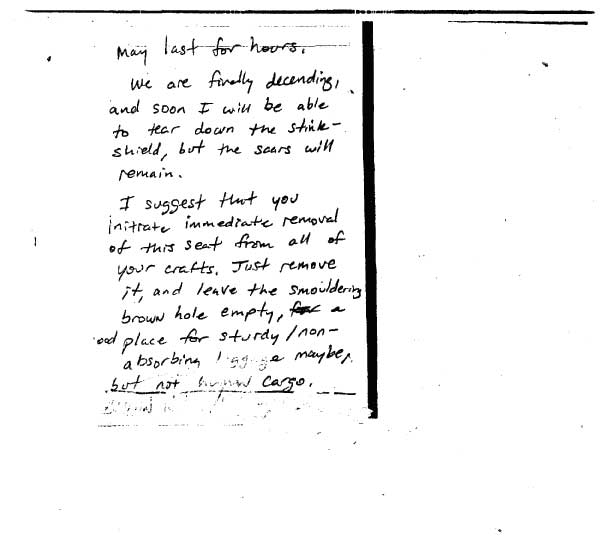 may last for hours.
We are finally decending,
and soon I will be able
to tear down the stink-
shield, but the scars will
remain.
I suggest that you
initiate immediate removal
of this seat from all of
your crafts. Just remove
it, and leave the smouldering
brown hole empty, for a
ood place for sturdy/non-
absorbing maybe,
but not human cargo.